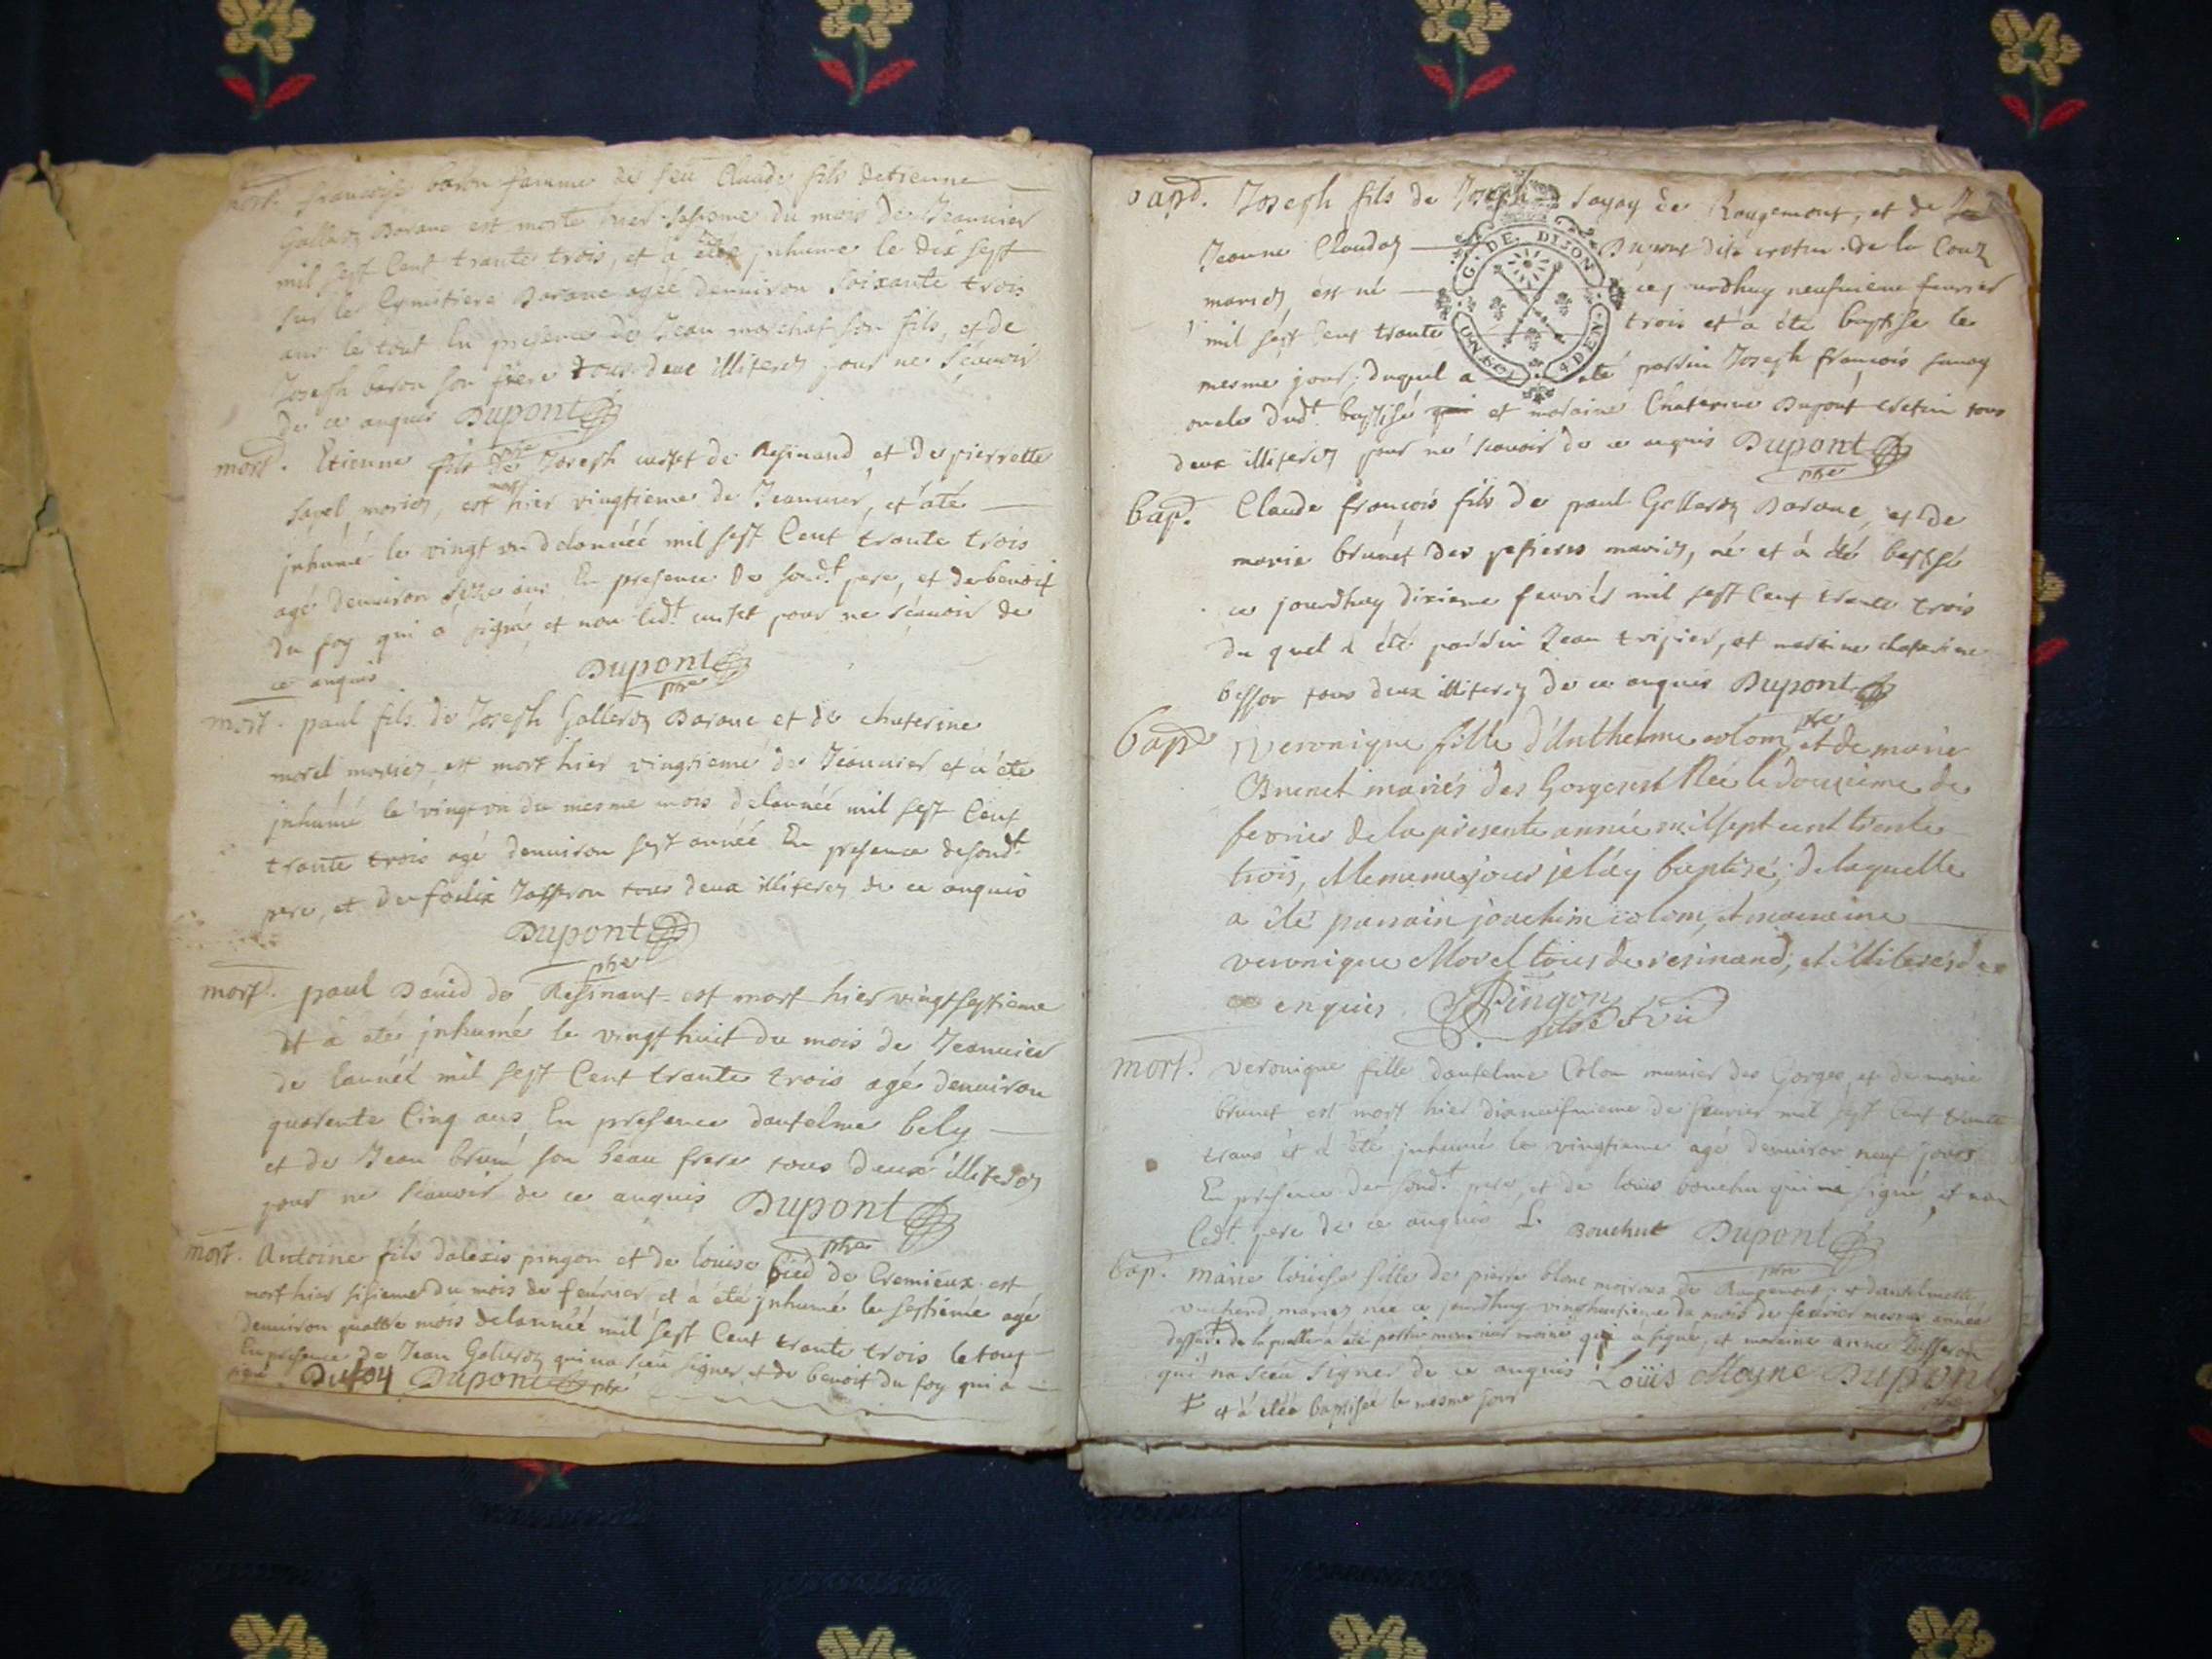 mort. francoise baron famme de feu Claude fils detienne
Gallard Barane est morte hier du mois de Jeanvier
mil sept Cent trante trois, et a été jnhume le dix sept
sur le Cymitiere Barane agée denviron soixante trois
ans le tout En presence de Jean marchat son fils, et de
Joseph baron son frere tous deux illiterez pour ne scavoir
de ce anquis Dupont
ptre
mort. Etienne fils de Joseph de Resinand et de pierrette
mariez, est mort hier vingtieme de Jeanvier, et a été
jnhumé le vingt un delannéé mil sept Cent trante trois
agé denviron ans En presence de sond.t pere, et de benoit
du foy qui a signé et non led.t pour ne scavoir de
ce anquis Dupont
ptre
mort. paul fils de Joseph Gallerdz Barane et de chaterine
morel mariez est mort hier vingtieme de Jeanvier et a été
jnhumé le vingt un du mesme mois delannéé mil sept Cent
trante trois agé denviron sept annéé En presence desond.t
pere, et de foelix Jasseron tous deux illiterez de ce anquis
Dupont
ptre
mort. paul David de Resinant est mort hier vingtseptieme
et a été jnhumé le vingt huit du mois de Jeanvier
de lannéé mil sept Cent trante trois agé denviron
quarente Cinq ans En presence dantelme bely
et de Jean brun son beau frere tous deux illiterez
pour ne scauoir de ce anquis Dupont
ptre
mort. Antoine fils dalexis pingon et de louise de Cremieux est
mort hier sisieme du mois de feuvrier et a été jnhumé le septiéme agé
denviron quattre mois delannéé mil sept Cent trante trois le tout
En presence de Jean Gallerdz qui na sceu signer et de benoit du foy qui a
signé Dufoy Dupont ptre
bapt. Joseph fils de Joseph de Rougemont, et de
Jeanne Claudaz de la Couz
mariez, est né ce jourdhuy neufvieme feuvrier
mil sept Cent trante trois et a été baptise le
mesme jour, duquel a été parrin Joseph françois
oncle dud.t baptisé et maraine Chaterine Dupont tous
deux illiterez pour ne scavoir de ce anquis Dupont
ptre
G. DE. DIJON
DEN.
bap. Claude françois fils de paul Gallerdz Barane, et de
marie brunet des mariez, né et a été baptisé
ce jourdhuy dixieme feuvriér mil sept Cent trante trois
du quel a été parrin Jean tripier, et maraine chaterine
tous deux illiterez de ce anquis Dupont
ptre
bapt Veronique fille d'Anthelme colom, et de marie
Brunet mariés des Gorges est Née le douzieme de
fevrier de la presente année mil sept cent trente
trois, et le meme jour je l'ay baptisé; de laquelle
a été parrain joachim colom, et maraine
veronique Morel tous de resinand, et illiterés de
ce enquis Pingon
mort. veronique fille dantelme Colon munier des Gorges et de marie
brunet est mort hier dixneufvieme de feuvrier mil sept Cent trante
trois et a été jnhumé le vingtieme agé denviron neuf jours
En presence de sond.t pere, et de louis bouchu qui a signé, et non
led.t pere de ce anquis L. Bouchut Dupont
ptre
bap. marie louise fille de pierre blanc de Rougemont, et dantelmette
mariez née ce jourdhuy vinghuitieme du mois de feuvrier mesme année
de la quelle a été parrin monsieur moine qui a signé, et maraine anne Jasseron
qui na sceu signer de ce anquis Loüis Moyne Dupont
et a été baptisée le mesme jour